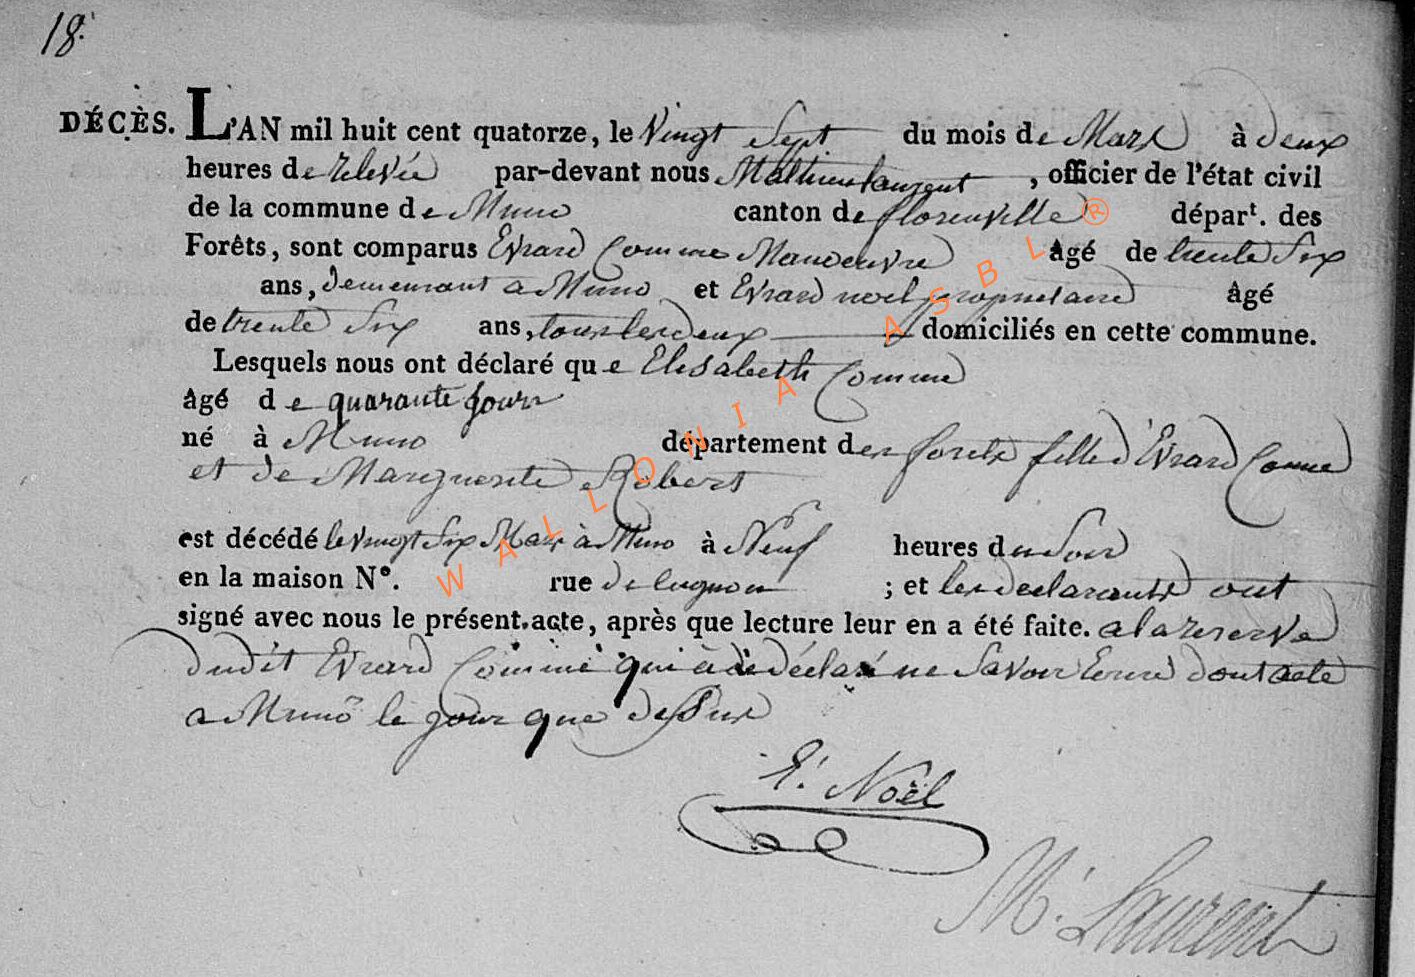 18.
DÉCÈS. L'AN mil huit cent quatorze, le Vingt Sept du mois de Mars à deux
heures de relevée par-devant nous Mathieu Laurent, officier de l'état civil
de la commune de Muno canton de florenville départ. des
Forêts, sont comparus Evrard Comme Manoeuvre âgé de trente Six
ans, demeurant a Muno et Evrard noel propriétaire âgé
de trente Six ans, tous les deux domiciliés en cette commune.
Lesquels nous ont déclaré que Elisabeth Comme
âgé de quarante jours
né à Muno département des forets fille d'Evrard Comme
et de Marguerite Robert
est décédé le vingt Six Mars à Muno à Neuf heures du Soir
en la maison N°. rue de lugnon ; et les déclarants ont
signé avec nous le présent acte, après que lecture leur en a été faite. a la reserve
dudit Evrard Comme qui à de déclaré ne Savoir Ecrire dont acte
a Muno le jour que dessus
E. Noël
M. Laurent
WALLONIA ASBL ®